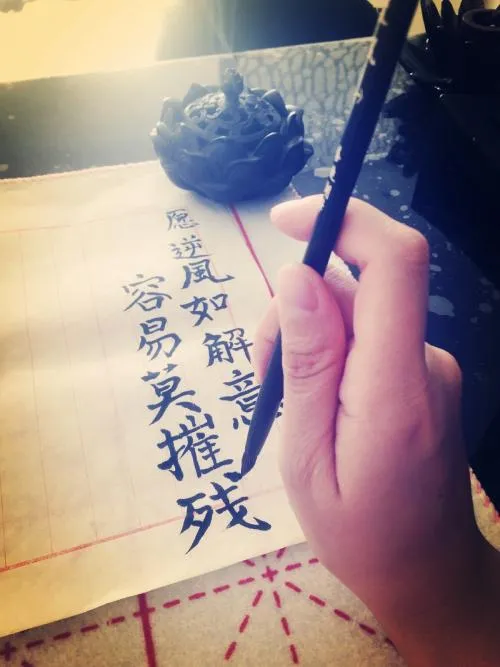 愿逆風如解意
容易莫摧残